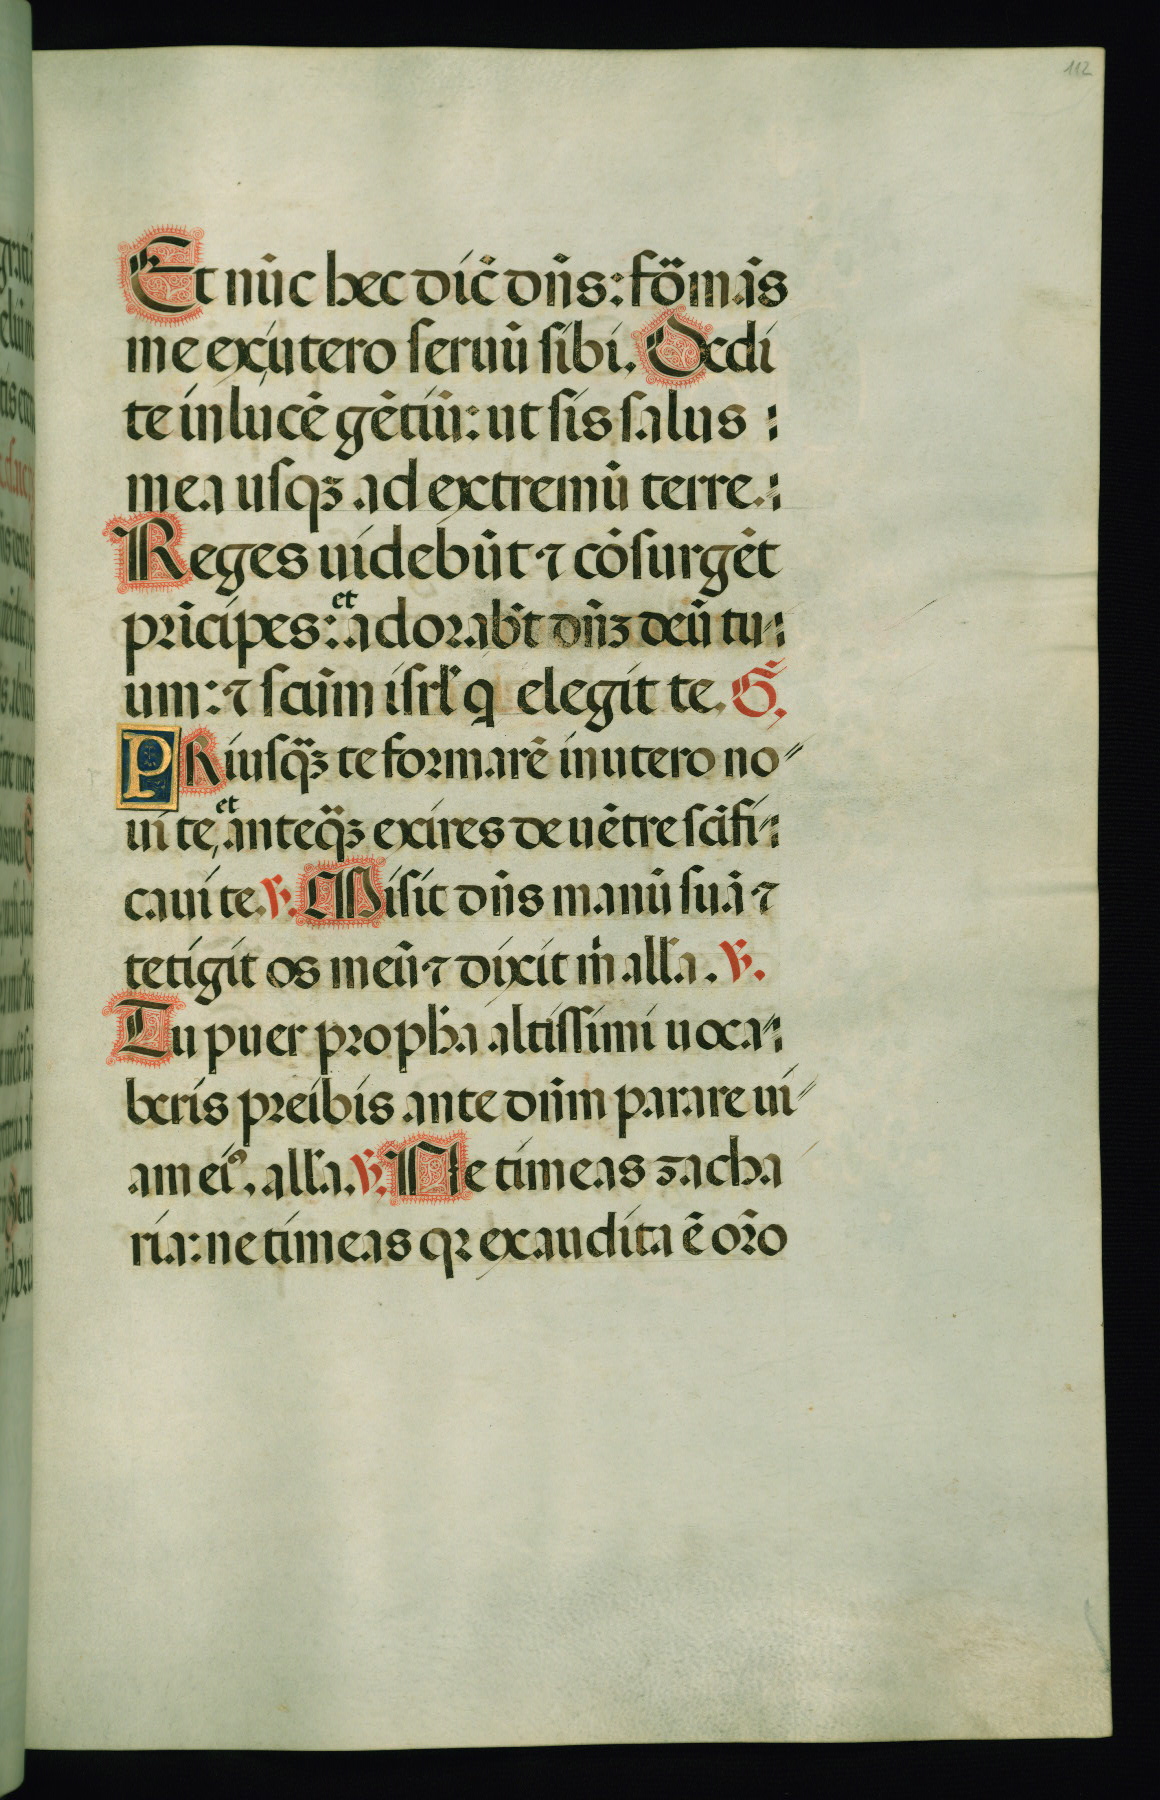 112
Et nūc hec dic̄ dn̄s: fōmās
me ex utero seruū sibi. Dedi
te in lucē gētiū: ut sis salus :
mea usqꝫ ad extremū terre.:
Reges uidebūt ⁊ cōsurgēt
prīcipes: et adorabt̄ dn̄ꝫ deū tu:
um: ⁊ scūm isrl̄ q elegit te. G̃.
PRiusq̄ꝫ te formarē in utero no〃
ui te, et anteq̄ꝫ exires de uētre scīfi:
caui te. ℣. Misit dn̄s manū suā ⁊
tetigit os meū ⁊ dixit m̄ alla. ℣.
Tu puer propha altissimi uoca:
beris preibis ante dn̄m parare ui〃
am eiꝰ, alla. ℣. Ne timeas zacha
ria: ne timeas qr exaudita ē or̄o